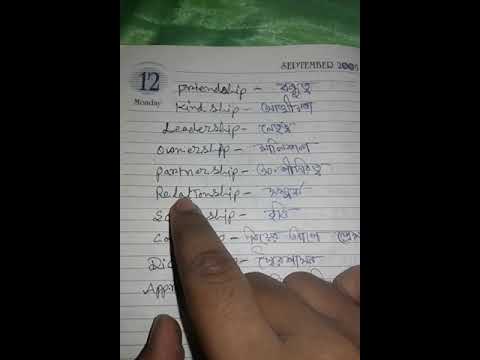 SEPTEMBER 2005
12
Monday
priendship - বন্ধুত্ব
Kindship - আত্মীয়তা
Leadership - নেতৃত্ব
Ownership - মালিকানা
partnership - অংশীদারিত্ব
Relationship - সম্পর্ক
ship - বৃত্তি
Co - বিয়ের আগে প্রেম
Dic
Appr